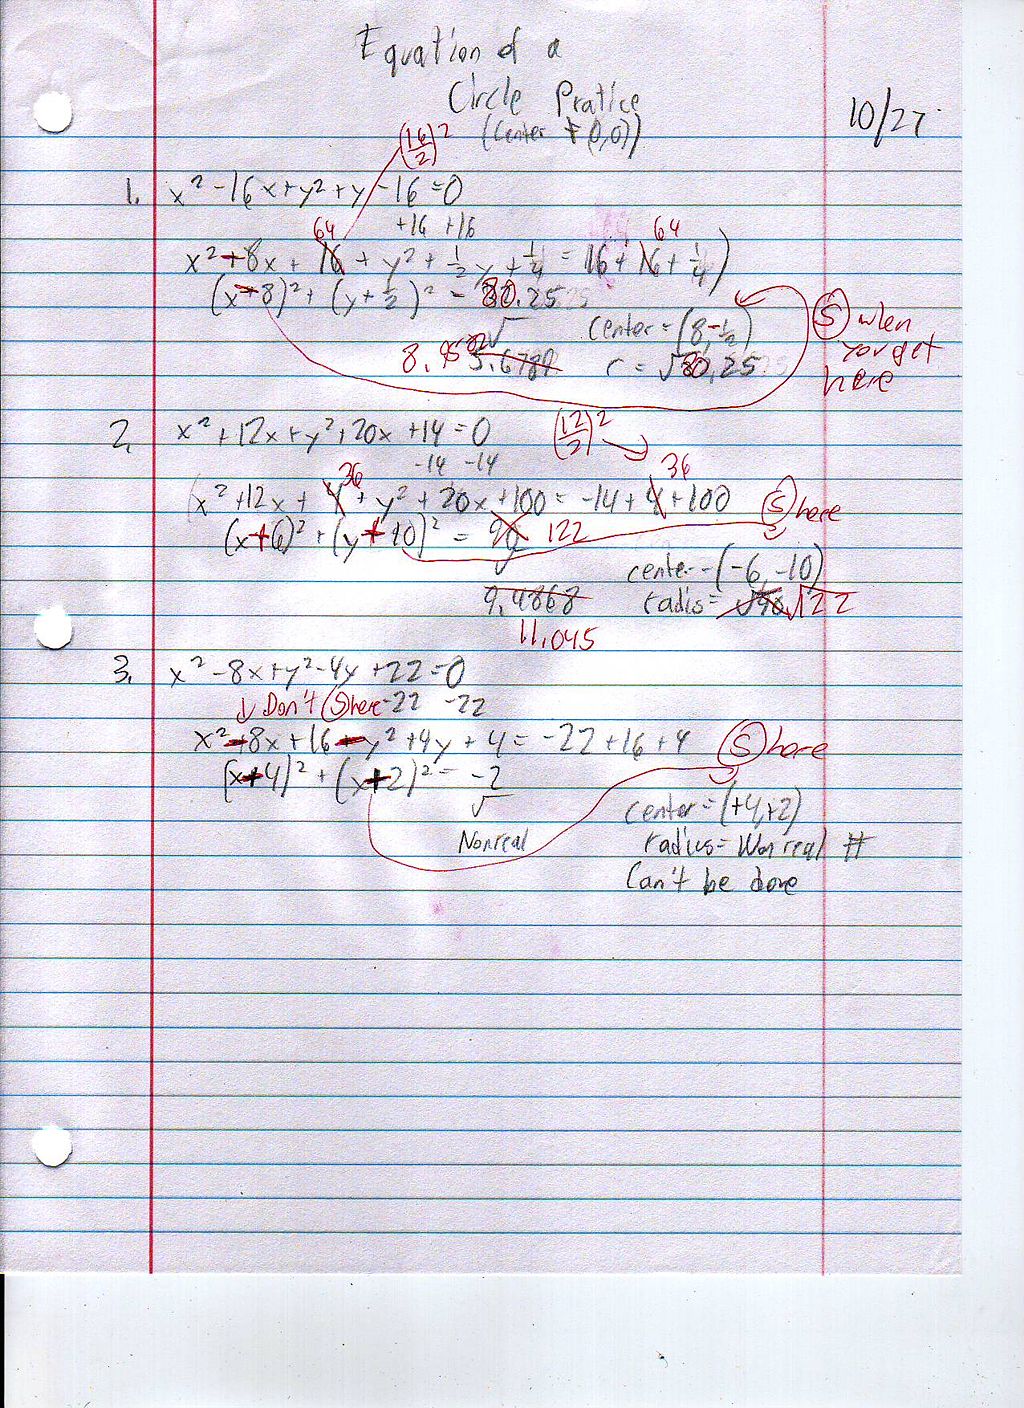 Equation of a
Circle Pratice
(Center ≠ (0,0))
10/27
(16/2)²
1. x² - 16x + y² + y - 16 = 0
+16 +16
64 64
x² - 8x + 16 + y² + 1/2 y + 1/4 = 16 + 16 + 1/4)
(x - 8)² + (y + 1/2)² = 80.25
√ center = (8, -1/2)
8.9582 5.6789 r = √80.25
(S) when
you get
here
2. x² + 12x + y² + 20x + 14 = 0
(12/2)²
-14 -14
36 36
x² + 12x + 4 + y² + 20x + 100 = -14 + 4 + 100 (S)here
(x + 6)² + (y + 10)² = 90 122
√ center - (-6, -10)
9.4868 radis = √90 √122
11.045
3. x² - 8x + y² - 4y + 22 = 0
↓ Don't (S)here -22 -22
x² - 8x + 16 - y² + 4y + 4 = -22 + 16 + 4 (S)here
(x + 4)² + (x + 2)² = -2
√ center = (+4, +2)
Nonreal radius = Non real #
Can't be done